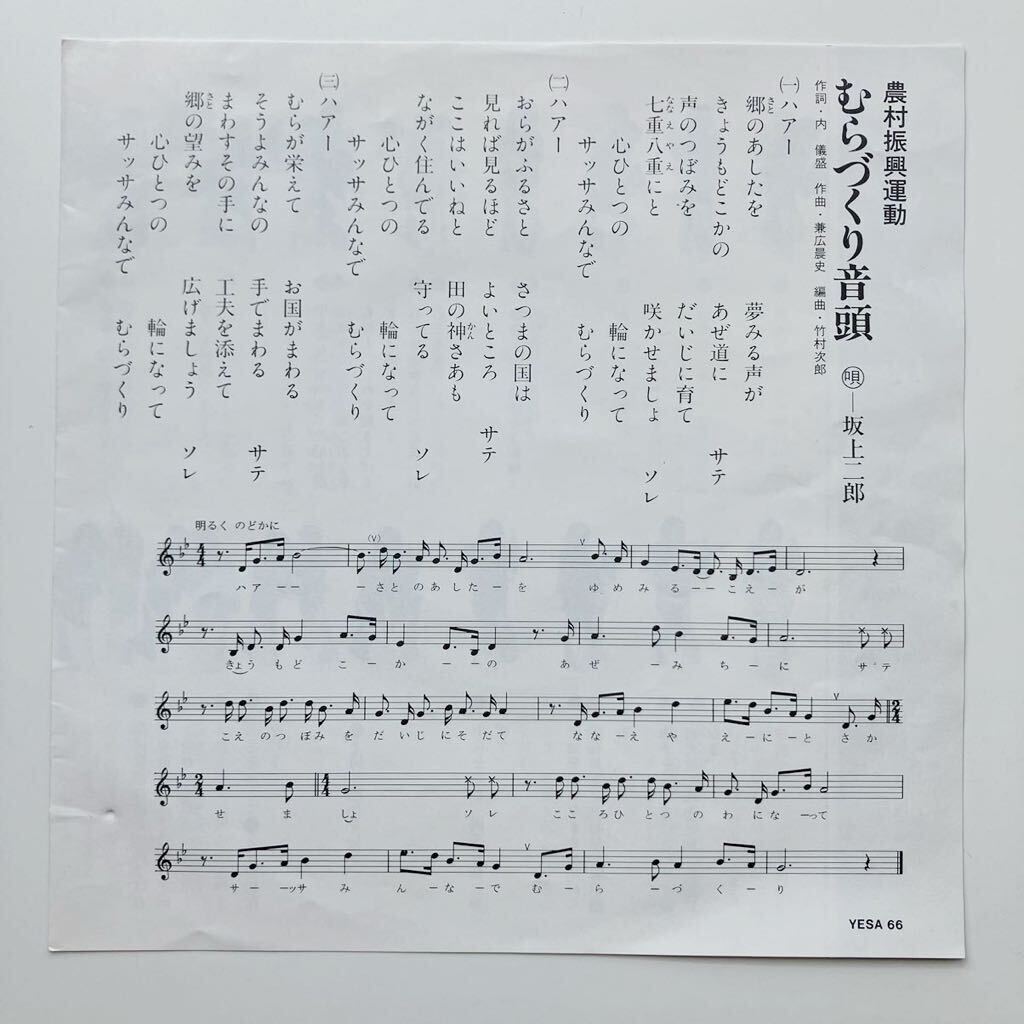 農村振興運動
むらづくり音頭 唄―坂上二郎
作詞・内 儀盛 作曲・兼広晨史 編曲・竹村次郎
㈠ハアー
郷のあしたを 夢みる声が
さと
きょうもどこかの あぜ道に サテ
声のつぼみを だいじに育て
七重八重にと 咲かせましょ ソレ
ななえやえ
心ひとつの 輪になって
サッサみんなで むらづくり
㈡ハアー
おらがふるさと さつまの国は
見れば見るほど よいところ サテ
ここはいいねと 田の神さあも
かん
ながく住んでる 守ってる ソレ
心ひとつの 輪になって
サッサみんなで むらづくり
㈢ハアー
むらが栄えて お国がまわる
そうよみんなの 手でまわる サテ
まわすその手に 工夫を添えて
郷の望みを 広げましょう ソレ
さと
心ひとつの 輪になって
サッサみんなで むらづくり
明るく のどかに
(V) V
4 4
ハアー ー ーさとのあしたーを ゆめみるーーこえーが
きょうもど こーかーーの あぜ ーみちーに サテ
V
2 4
こえのつぼみを だいじにそだて ななーえや えーにーとさか
2 4 4 4
せ ま しょ ソレ こころひとつのわになーって
V
サーーッサみ んーなーで むーら ーづくーり
YESA 66